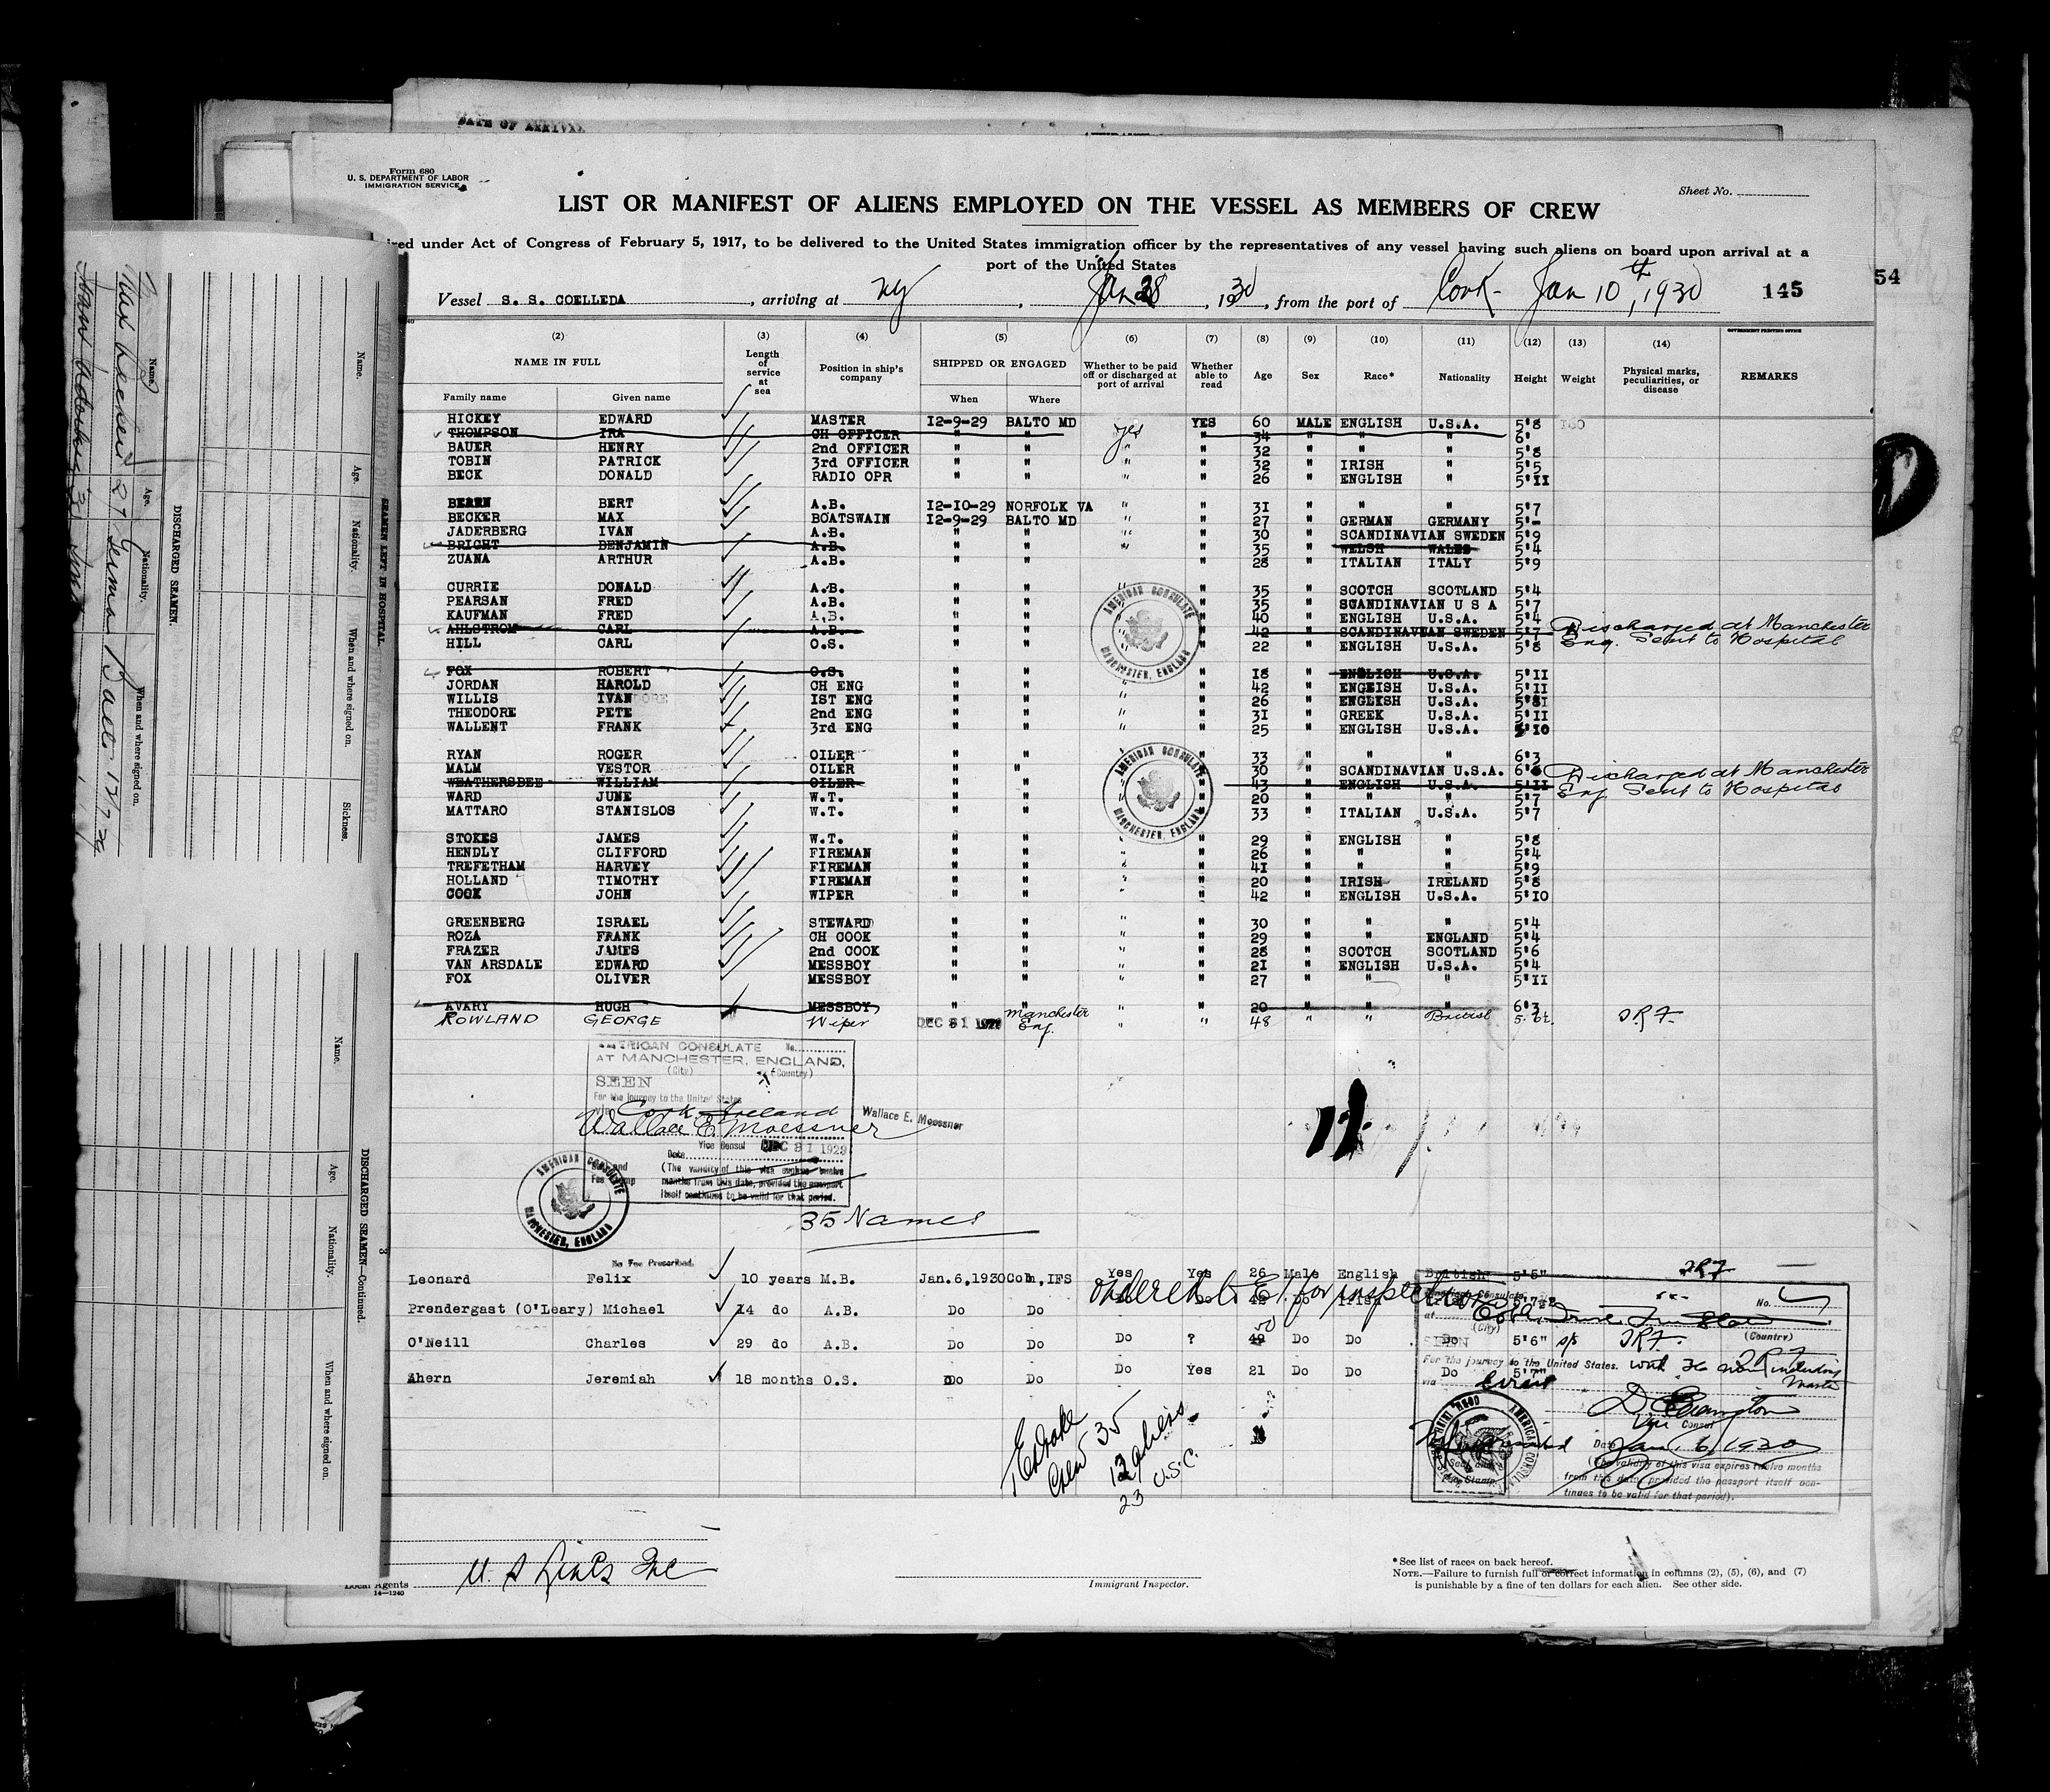 DATE OF ARRIVAL
Form 680
U. S. DEPARTMENT OF LABOR
IMMIGRATION SERVICE
Sheet No.
LIST OR MANIFEST OF ALIENS EMPLOYED ON THE VESSEL AS MEMBERS OF CREW
under Act of Congress of February 5, 1917, to be delivered to the United States immigration officer by the representatives of any vessel having such aliens on board upon arrival at a
port of the United States
54
Vessel S. S. COELLEDA, arriving at NY, Jan 28, 1930, from the port of Cork - Jan 10th, 1930 145
(2) (3) (4) (5) (6) (7) (8) (9) (10) (11) (12) (13) (14)
NAME IN FULL Length of service at sea Position in ship's company SHIPPED OR ENGAGED Whether to be paid off or discharged at port of arrival Whether able to read Age Sex Race* Nationality Height Weight Physical marks, peculiarities, or disease REMARKS
GOVERNMENT PRINTING OFFICE
Family name Given name When Where
HICKEY EDWARD MASTER 12-9-29 BALTO MD yes YES 60 MALE ENGLISH U.S.A. 5'8
THOMPSON IRA CH OFFICER " " " 34 " " " 6'
BAUER HENRY 2nd OFFICER " " " " 32 " " " 5'8
TOBIN PATRICK 3rd OFFICER " " " " 32 " IRISH " 5'5
BECK DONALD RADIO OPR " " " " 26 " ENGLISH " 5'11
BERT A.B. 12-10-29 NORFOLK VA " " 31 " " " 5'7
BECKER MAX BOATSWAIN 12-9-29 BALTO MD " " 27 " GERMAN GERMANY 5'-
JADERBERG IVAN A.B. " " " " 30 " SCANDINAVIAN SWEDEN 5'9
BRIGHT BENJAMIN A.B. " " " " 35 " WELSH WALES 5'4
ZUANA ARTHUR A.B. " " " 28 " ITALIAN ITALY 5'9
CURRIE DONALD A.B. " " " " 35 " SCOTCH SCOTLAND 5'4
PEARSAN FRED A.B. " " " 35 " SCANDINAVIAN U S A 5'7
KAUFMAN FRED A.B. " " " 40 " ENGLISH U.S.A. 5'4
AHLSTROM CARL A.B. " " " 42 " SCANDINAVIAN SWEDEN 5'7 Discharged at Manchester
HILL CARL O.S. " " " 22 " ENGLISH U.S.A. 5'8 Eng. Sent to Hospital
FOX ROBERT O.S. " " " 18 " ENGLISH U.S.A. 5'11
JORDAN HAROLD CH ENG " " " " 42 " ENGLISH U.S.A. 5'11
WILLIS IVAN 1ST ENG " " " " 26 " ENGLISH U.S.A.
THEODORE PETE 2nd ENG " " " " 31 " GREEK U.S.A. 5'11
WALLENT FRANK 3rd ENG " " " " 25 " ENGLISH U.S.A. 5'10
RYAN ROGER OILER " " " 33 " " " 6'3
MALM VESTOR OILER " " " 30 " SCANDINAVIAN U.S.A. 6' Discharged at Manchester
WEATHERSBEE WILLIAM OILER " " " 43 " ENGLISH U.S.A. 5'11 Eng. Sent to Hospital
WARD JUNE W.T. " " " 20 " " " 5'7
MATTARO STANISLOS W.T. " " " 33 " ITALIAN U.S.A. 5'7
STOKES JAMES W.T. " " " " 29 " ENGLISH " 5'8
HENDLY CLIFFORD FIREMAN " " " " 26 " " " 5'4
TREFETHAM HARVEY FIREMAN " " " " 41 " " " 5'9
HOLLAND TIMOTHY FIREMAN " " " " 20 " IRISH IRELAND 5'8
COOK JOHN WIPER " " " " 42 " ENGLISH U.S.A. 5'10
GREENBERG ISRAEL STEWARD " " " " 30 " " " 5'4
ROZA FRANK CH COOK " " " " 29 " " ENGLAND 5'4
FRAZER JAMES 2nd COOK " " " " 28 " SCOTCH SCOTLAND 5'6
VAN ARSDALE EDWARD MESSBOY " " " " 21 " ENGLISH U.S.A. 5'4
FOX OLIVER MESSBOY " " " " 27 " " " 5'11
AVARY HUGH MESSBOY " " " " 20 " " " 6'3
ROWLAND GEORGE Wiper DEC 31 1929 Manchester Eng. " " 48 " " British
AMERICAN CONSULATE No.
AT MANCHESTER, ENGLAND,
(City) (Country)
SEEN
For the journey to the United States
via Cork Ireland
Wallace E. Moessner Wallace E. Moessner
Vice Consul
Date DEC 31 1929
(The validity of this visa expires twelve
months from this date, provided the passport
itself continues to be valid for that period.
AMERICAN CONSULATE MANCHESTER, ENGLAND
AMERICAN CONSULATE MANCHESTER, ENGLAND
AMERICAN CONSULATE MANCHESTER, ENGLAND
35 Names
No Fee Prescribed.
Leonard Felix 10 years M.B. Jan.6,1930 Cobh, IFS Yes Yes 26 Male English British 5'5"
Ordered to E.I. for inspection
Prendergast (O'Leary) Michael 14 do A.B. Do Do Do Do Irish
O'Neill Charles 29 do A.B. Do Do Do ? 50 49 Do Do Do 5'6"
Ahern Jeremiah 18 months O.S. Do Do Do Yes 21 Do Do Do 5'7"
American Consulate
at No.
(City) (Country)
SEEN
For the journey to the United States. including Master
via
Vice Consul
Date Jan. 6, 1930
(The validity of this visa expires twelve months
from this date, provided the passport itself con-
tinues to be valid for that period).
Crew 35
12 aliens
23 U.S.C.
U. S Lines Inc
Local Agents
14—1240
Immigrant Inspector.
*See list of races on back hereof.
NOTE.—Failure to furnish full or correct information in columns (2), (5), (6), and (7)
is punishable by a fine of ten dollars for each alien. See other side.
SEAMEN LEFT IN HOSPITAL.
Name. Age. Nationality. When and where signed on. Sickness.
DISCHARGED SEAMEN.
Name. Age. Nationality. When and where signed on.
Max Becker 27 German Balto 12/9/29
DISCHARGED SEAMEN—Continued.
Name. Age. Nationality. When and where signed on.
3